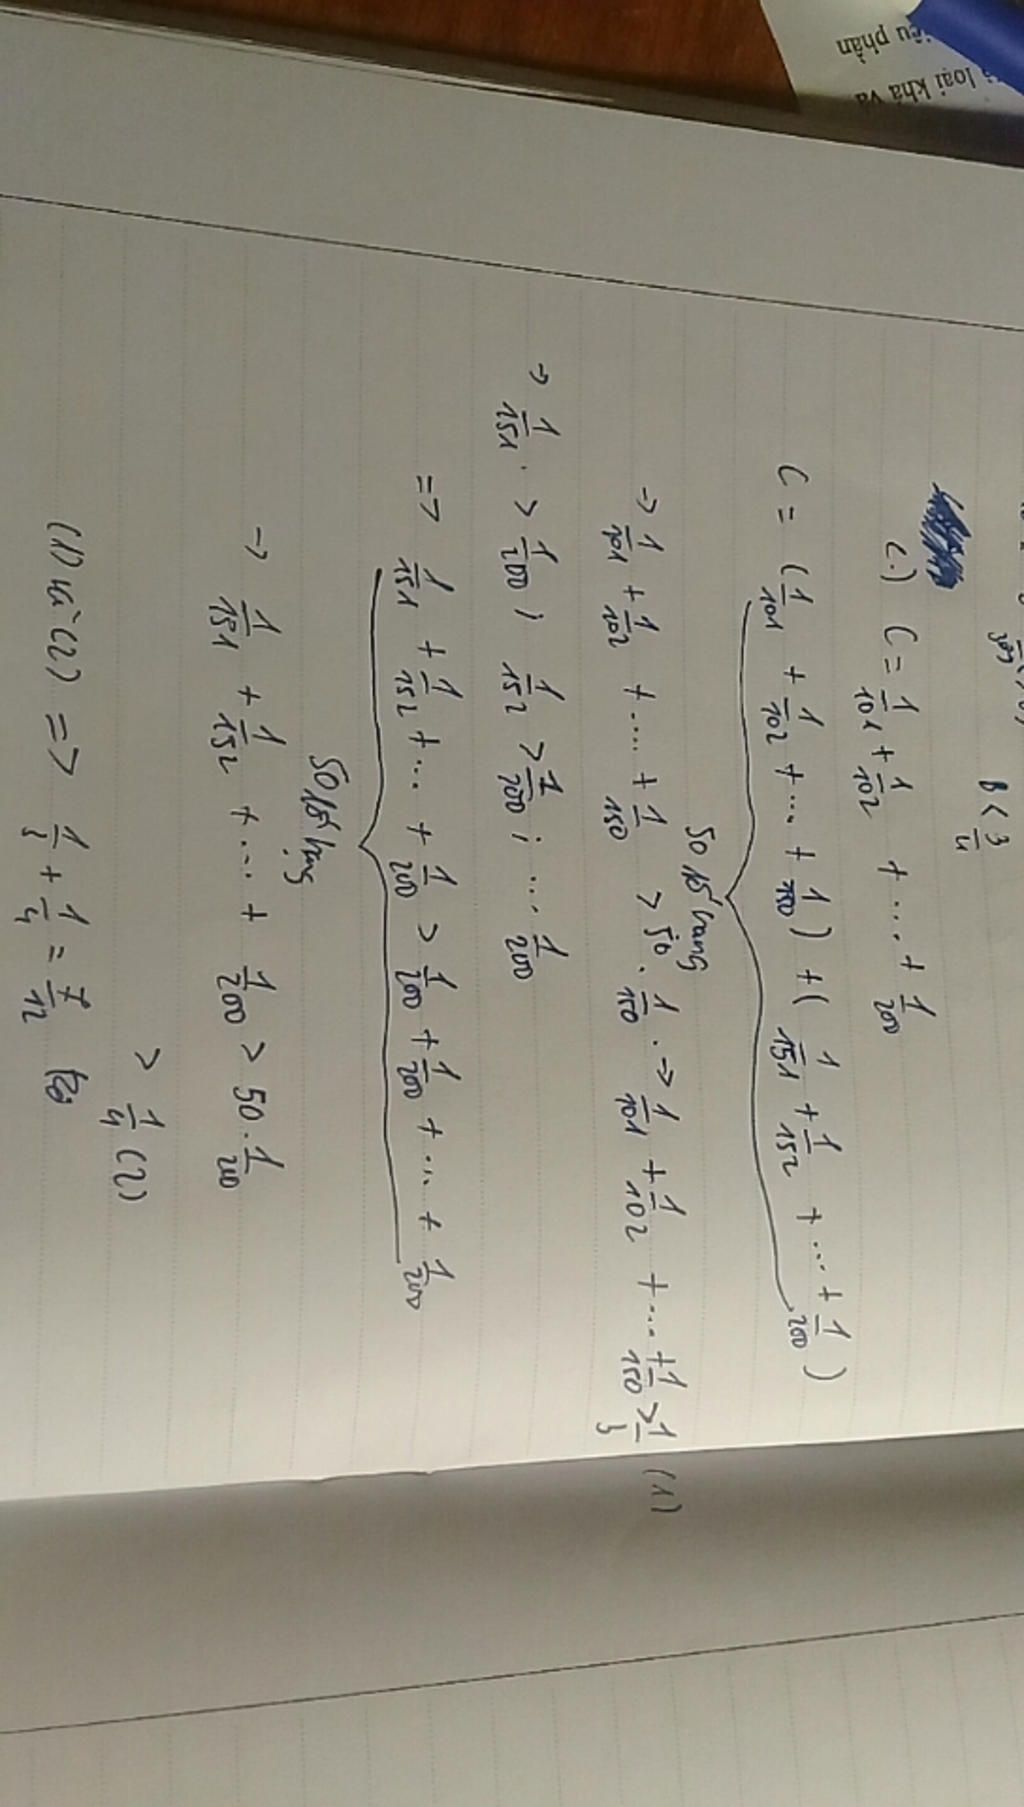 B < 3/4
C.) C = 1/101 + 1/102 + .... + 1/200
C = (1/101 + 1/102 + ... + 1/150) + (1/151 + 1/152 + ... + 1/200)
50 số hạng
-> 1/101 + 1/102 + .... + 1/150 > 50 . 1/150 . -> 1/101 + 1/102 + ... + 1/150 > 1/3 (1)
-> 1/151 . > 1/200 ; 1/152 > 1/200 ; .... 1/200
=> 1/151 + 1/152 + ... + 1/200 > 1/200 + 1/200 + ... + 1/200
50 số hạng
-> 1/151 + 1/152 + ... + 1/200 > 50 . 1/200
> 1/4 (2)
(1) và (2) => 1/3 + 1/4 = 7/12
loại khá và